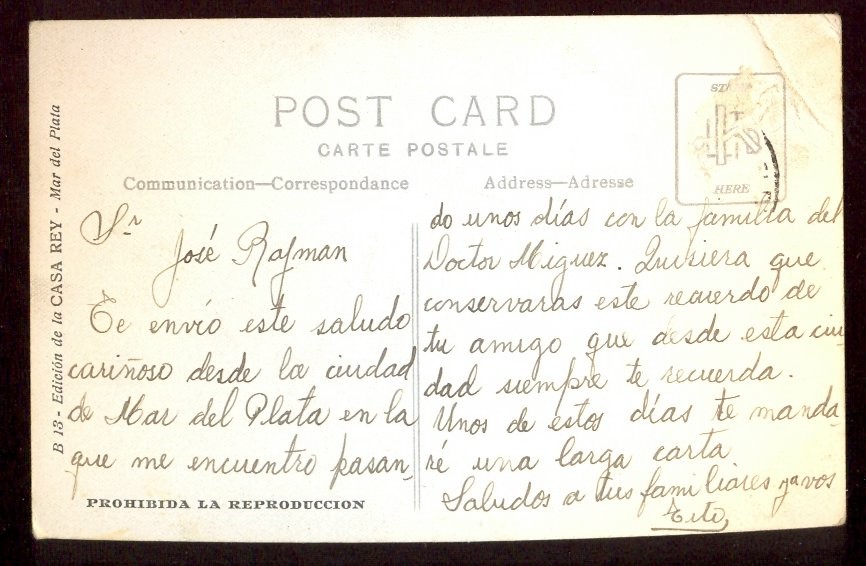 POST CARD
CARTE POSTALE
Communication—Correspondance
Address—Adresse
HERE
B 13 - Edición de la CASA REY - Mar del Plata
Sr
José Rajman
Te envío este saludo
cariñoso desde la ciudad
de Mar del Plata en la
que me encuentro pasan-
PROHIBIDA LA REPRODUCCION
do unos días con la familia del
Doctor Miguez. Quisiera que
conservaras este recuerdo de
tu amigo que desde esta ciu
dad siempre te recuerda.
Unos de estos días te manda-
ré una larga carta
Saludos a tus familiares y a vos
Tito